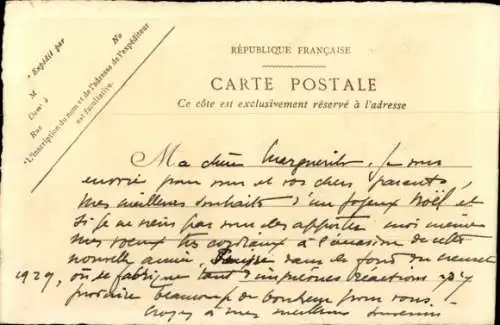 * Expédié par
No
M
Demt à
Rue
*L'inscription du nom et de l'adresse de l'expéditeur
est facultative.
RÉPUBLIQUE FRANÇAISE
CARTE POSTALE
Ce côté est exclusivement réservé à l'adresse
Ma chère Marguerite, je vous
envoie pour vous et vos chers parents,
mes meilleurs souhaits d'un joyeux Noël et
si je ne viens pas vous les apporter moi même
mes voeux les cordiaux à l'occasion de cette
nouvelle année, dans le fond du creuset
1929, où se fabrique tant d' réactions
produire beaucoup de bonheur pour vous.
Croyez à mes meilleurs souvenirs